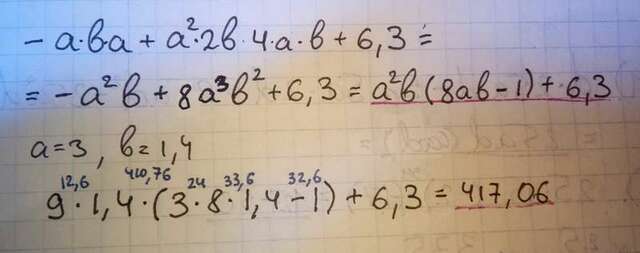 - a·b·a + a²·2b·4·a·b + 6,3 =
= -a²b + 8a³b² + 6,3 = a²b(8ab-1) + 6,3
a=3, b=1,4
12,6 410,76 24 33,6 32,6
9·1,4·(3·8·1,4-1) + 6,3 = 417,06